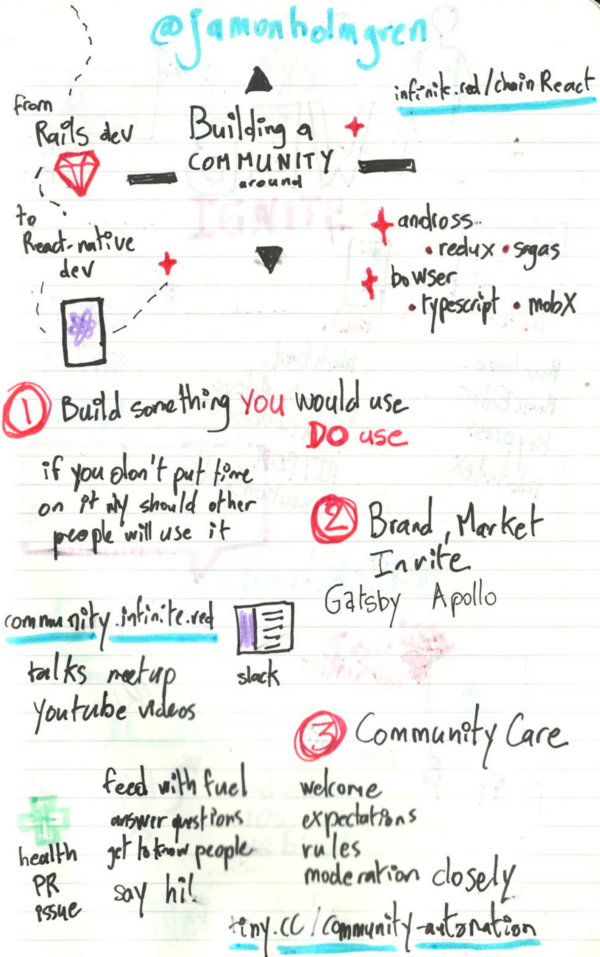 @jamonholmgren
infinite.red/chainReact
from
Rails dev
Building a
COMMUNITY
around
IGNITE
to
React-native
dev
andross
• redux • sagas
bowser
• typescript • mobX
1 Build something YOU would use
DO use
if you don't put time
on it why should other
people will use it
2 Brand, Market
Invite
Gatsby Apollo
community.infinite.red
slack
talks meetup
youtube videos
3 Community Care
feed with fuel
answer questions
get to know people
say hi!
welcome
expectations
rules
moderation closely
health
PR
issue
tiny.cc/community-automation